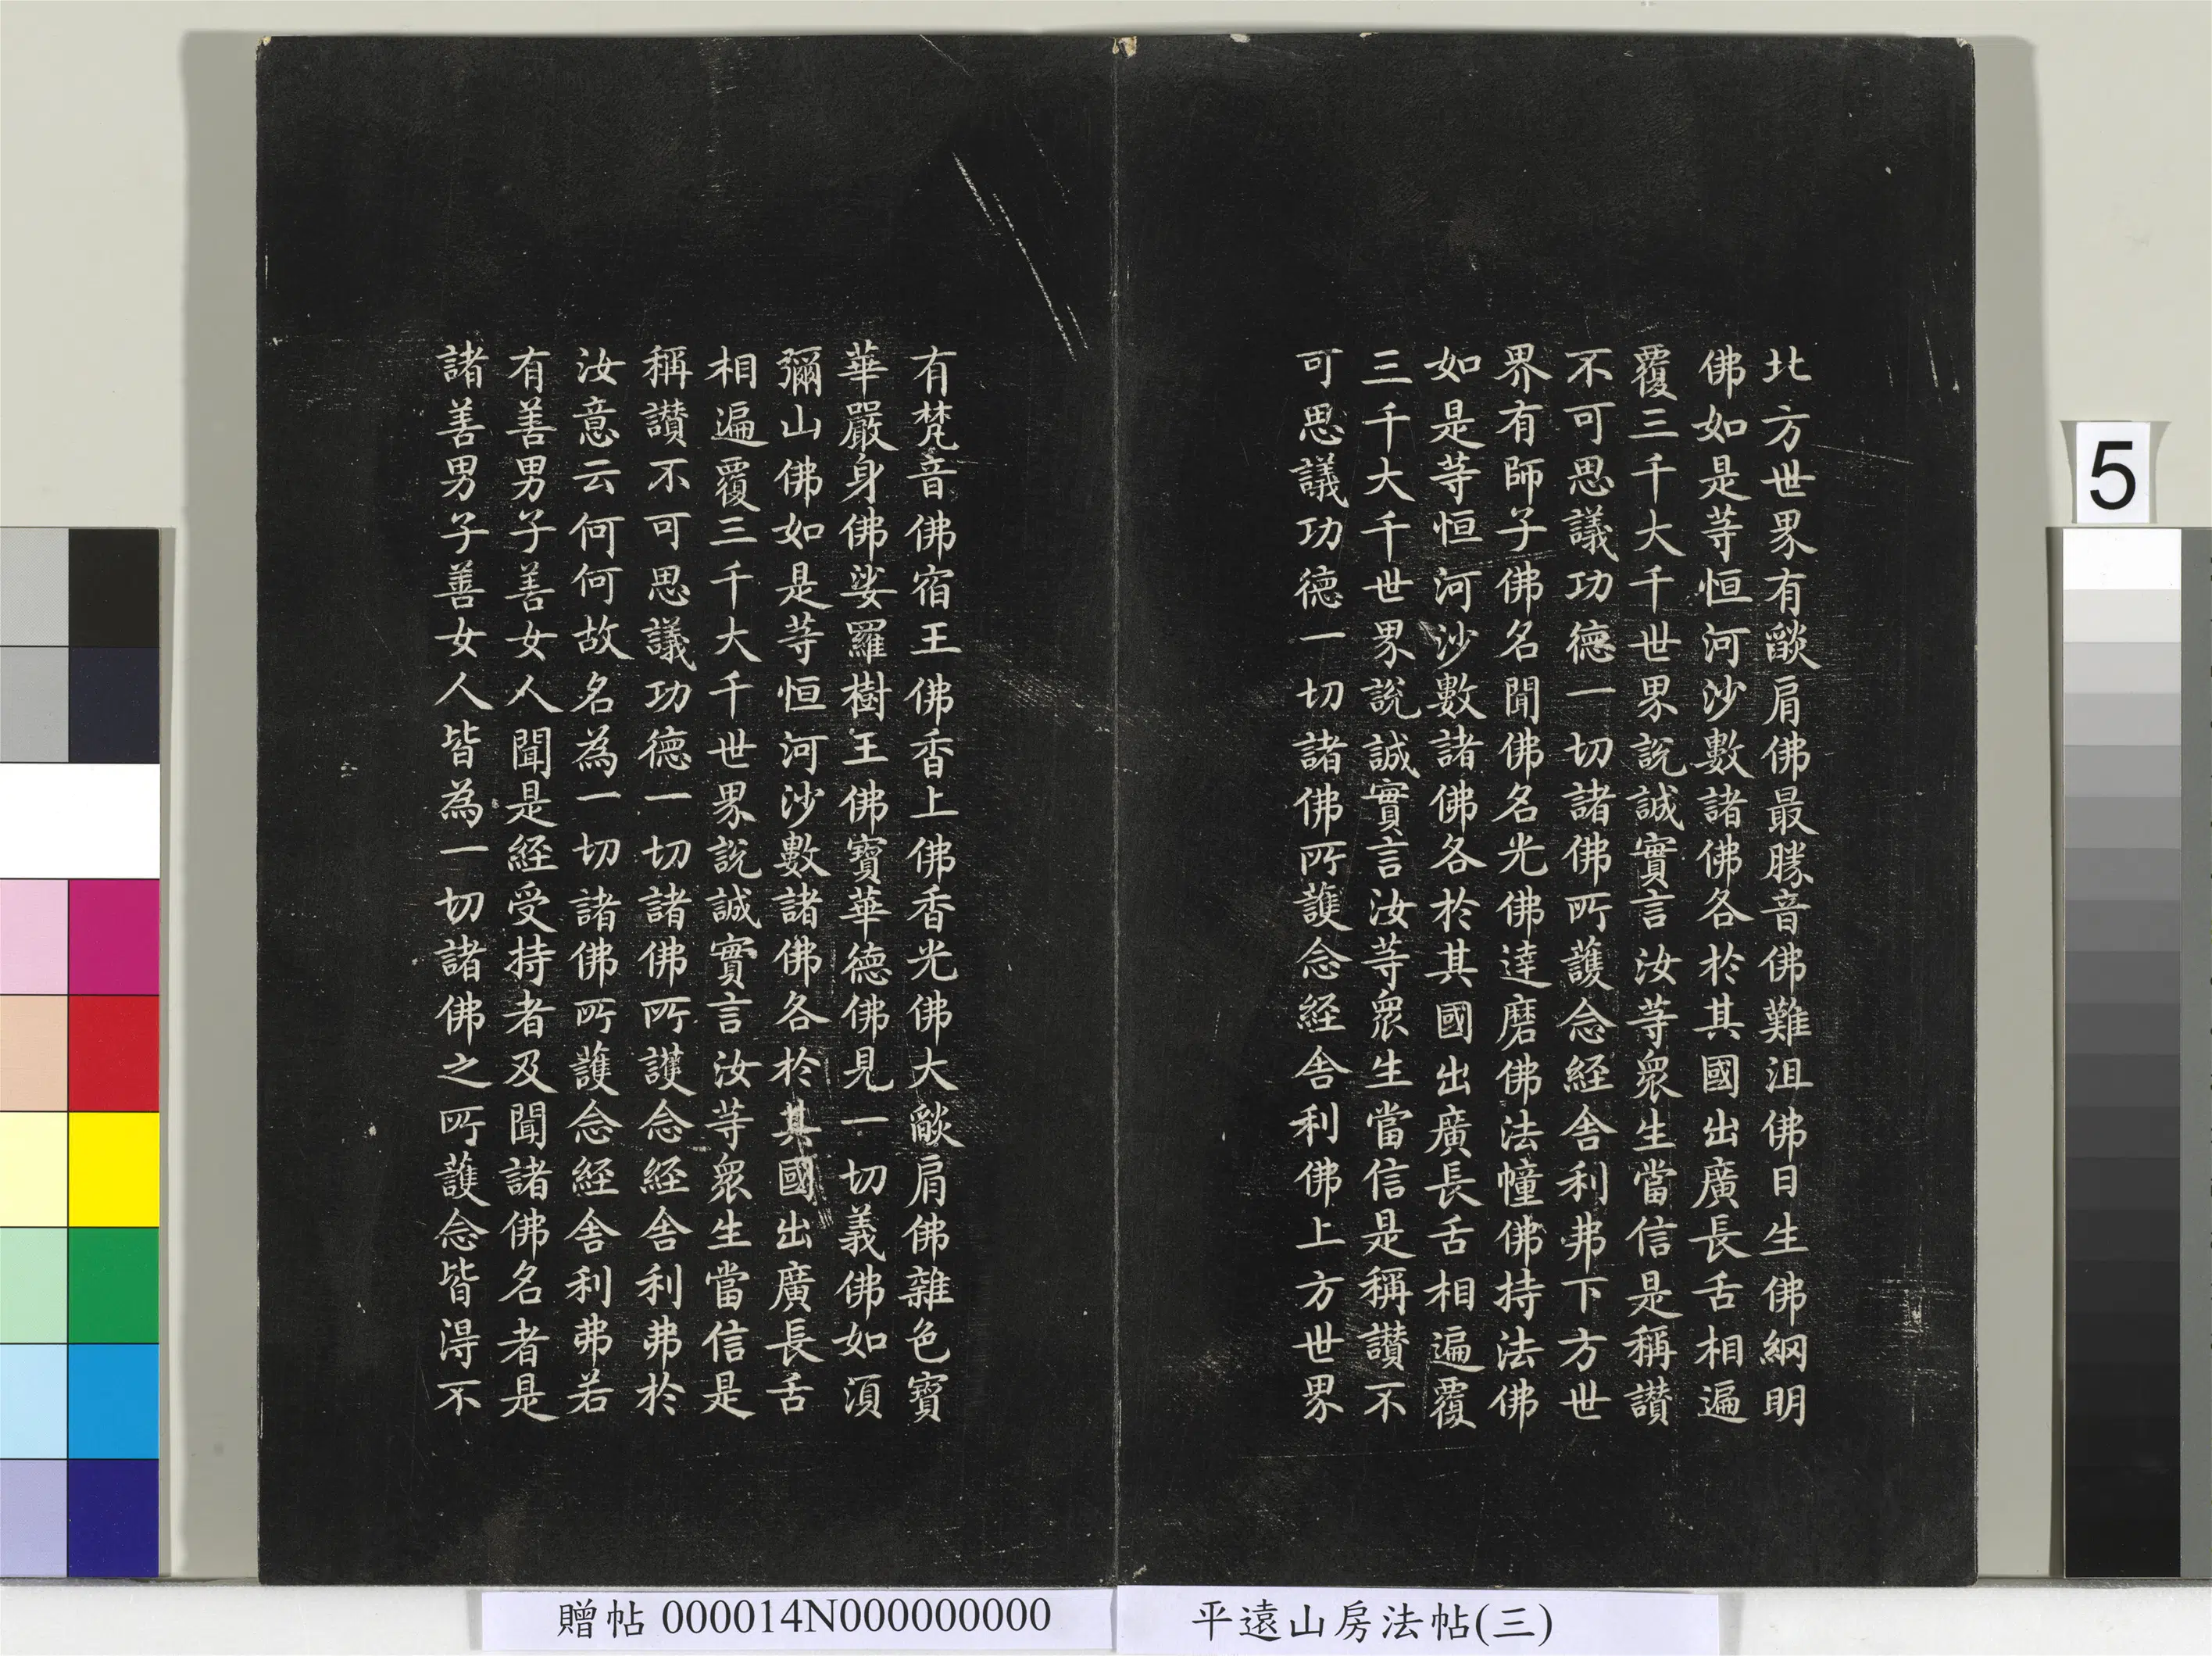 北方世界有燄肩佛最勝音佛難沮佛日生佛網明
佛如是等恒河沙數諸佛各於其國出廣長舌相遍
覆三千大千世界說誠實言汝等衆生當信是稱讚
不可思議功德一切諸佛所護念経舍利弗下方世
界有師子佛名聞佛名光佛達磨佛法幢佛持法佛
如是等恒河沙數諸佛各於其國出廣長舌相遍覆
三千大千世界說誠實言汝等衆生當信是稱讚不
可思議功德一切諸佛所護念経舍利佛上方世界
有梵音佛宿王佛香上佛香光佛大燄肩佛雜色寶
華嚴身佛娑羅樹王佛寶華德佛見一切義佛如湏
彌山佛如是等恒河沙數諸佛各於其國出廣長舌
相遍覆三千大千世界說誠實言汝等衆生當信是
稱讚不可思議功德一切諸佛所護念経舍利弗於
汝意云何何故名為一切諸佛所護念経舍利弗若
有善男子善女人聞是経受持者及聞諸佛名者是
諸善男子善女人皆為一切諸佛之所護念皆淂不
5
贈帖 000014N000000000
平遠山房法帖(三)